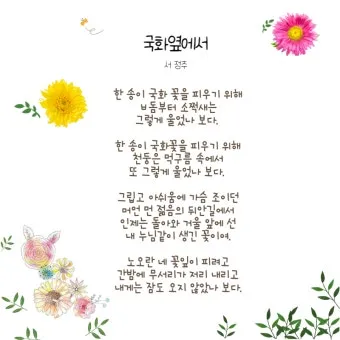 국화옆에서
서 정주
한 송이 국화 꽃을 피우기 위해
봄부터 소쩍새는
그렇게 울었나 보다.
한 송이 국화꽃을 피우기 위해
천둥은 먹구름 속에서
또 그렇게 울었나 보다.
그립고 아쉬움에 가슴 조이던
머언 먼 젊음의 뒤안길에서
인제는 돌아와 거울 앞에 선
내 누님같이 생긴 꽃이여.
노오란 네 꽃잎이 피려고
간밤에 무서리가 저리 내리고
내게는 잠도 오지 않았나 보다.